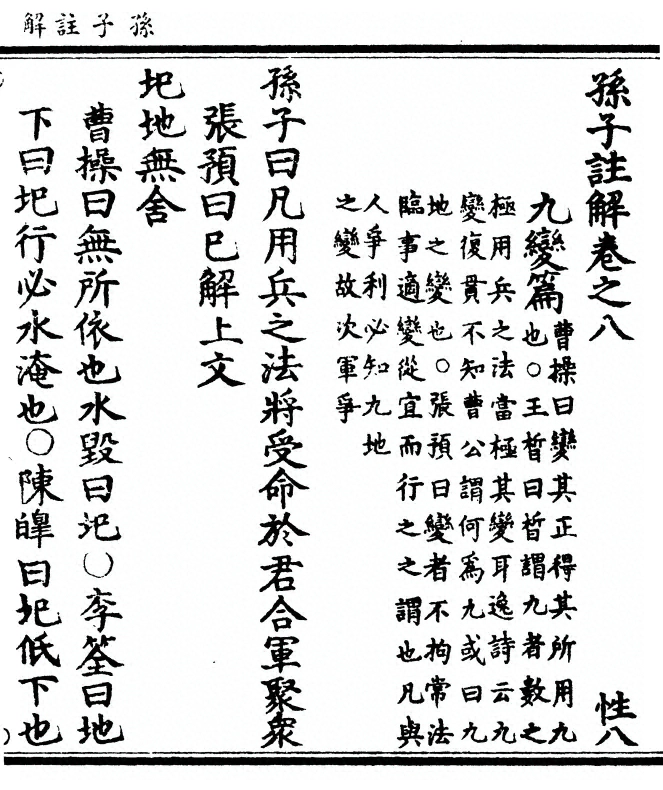 孫子註解
孫子註解卷之八 性八
九變篇 曹操曰變其正得其所用九
也○王晳曰晳謂九者數之
極用兵之法當極其變耳逸詩云九
變復貫不知曹公謂何爲九或曰九
地之變也○張預曰變者不拘常法
臨事適變從宜而行之之謂也凡與
人爭利必知九地
之變故次軍爭
孫子曰凡用兵之法將受命於君合軍聚衆
張預曰巳解上文
圯地無舍
曹操曰無所依也水毀曰圯○李筌曰地
下曰圯行必水淹也○陳皥曰圯低下也